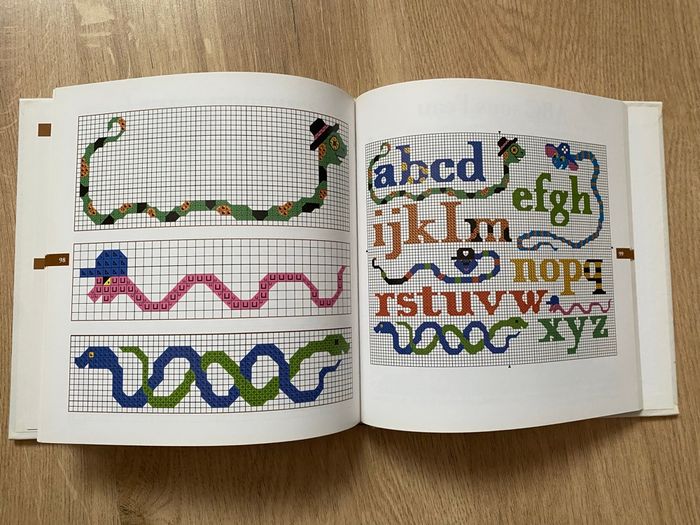 98
abcd
efgh
ijklm
nopq
rstuvw
xyz
99